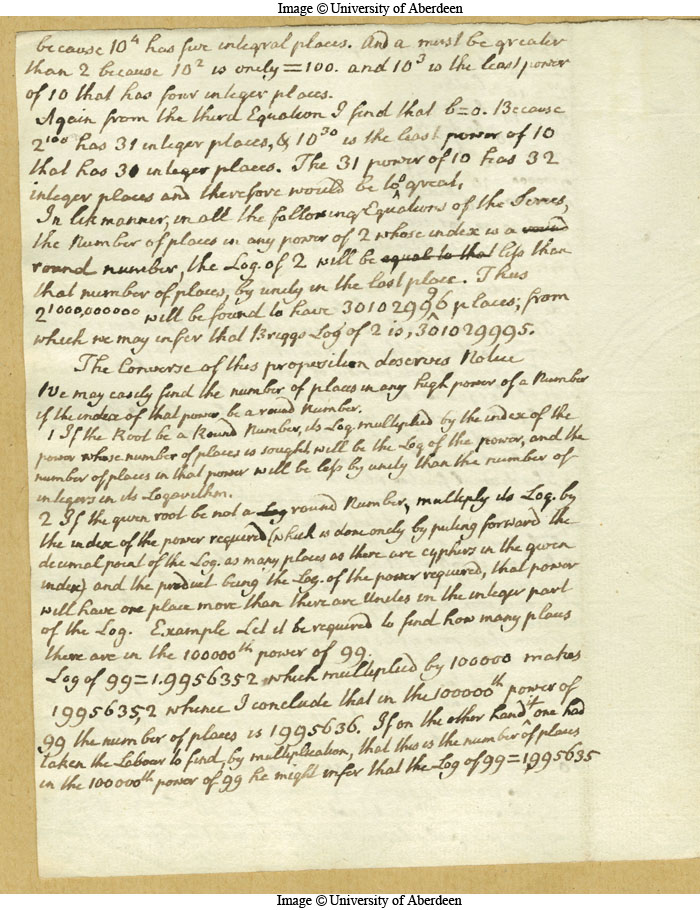 Image © University of Aberdeen
because 10⁴ has five integral places. And a must be greater
than 2 because 10² is onely =100. and 10³ is the least power
of 10 that has four integer places.
Again from the third Equation I find that b=0. Because
2¹⁰⁰ has 31 integer places, & 10³⁰ is the least power of 10
that has 30 integer places. The 31 power of 10 has 32
integer places and therefore would be too great.
In like manner, in all the following Equations of the Series,
the Number of places in any power of 2 whose index is a round
round number, the Log. of 2 will be equal to that less than
that number of places, by unity in the last place. Thus
2¹⁰⁰⁰,⁰⁰⁰⁰⁰⁰ will be found to have 301029996 places; from
which we may infer that Briggs Log of 2 is ,301029995.
The Converse of this proposition deserves Notice
We may easily find the number of places in any high power of a Number
if the index of that power be a round Number.
1 If the Root be a Round Number, its Log. multiplied by the index of the
power whose number of places is sought, will be the Log of the power, and the
number of places in that power will be less by unity than the number of
integers in its Logarithm.
2 If the given root be not a Log round Number, multiply its Log. by
the index of the power required (which is done onely by puting forward the
decimal point of the Log. as many places as there are cyphers in the given
index) and the product being the Log. of the power required, that power
will have one place more than there are Unites in the integer part
of the Log. Example Let it be required to find how many places
there are in the 100000th power of 99.
Log of 99=1.9956352 which multiplied by 100000 makes
1995635,2 whence I conclude that in the 100000th power of
99 the number of places is 1995636. If on the other hand it one had
taken the Labour to find, by multiplication, that this is the number of places
in the 100000th power of 99 he might infer that the Log of 99=1,995635
Image © University of Aberdeen